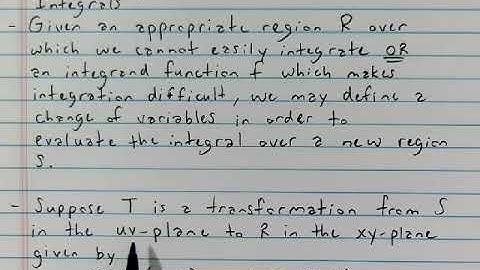 Integrals
- Given an appropriate region R over
which we cannot easily integrate OR
an integrand function f which makes
integration difficult, we may define a
change of variables in order to
evaluate the integral over a new region
S.
- Suppose T is a transformation from S
in the uv-plane to R in the xy-plane
given by